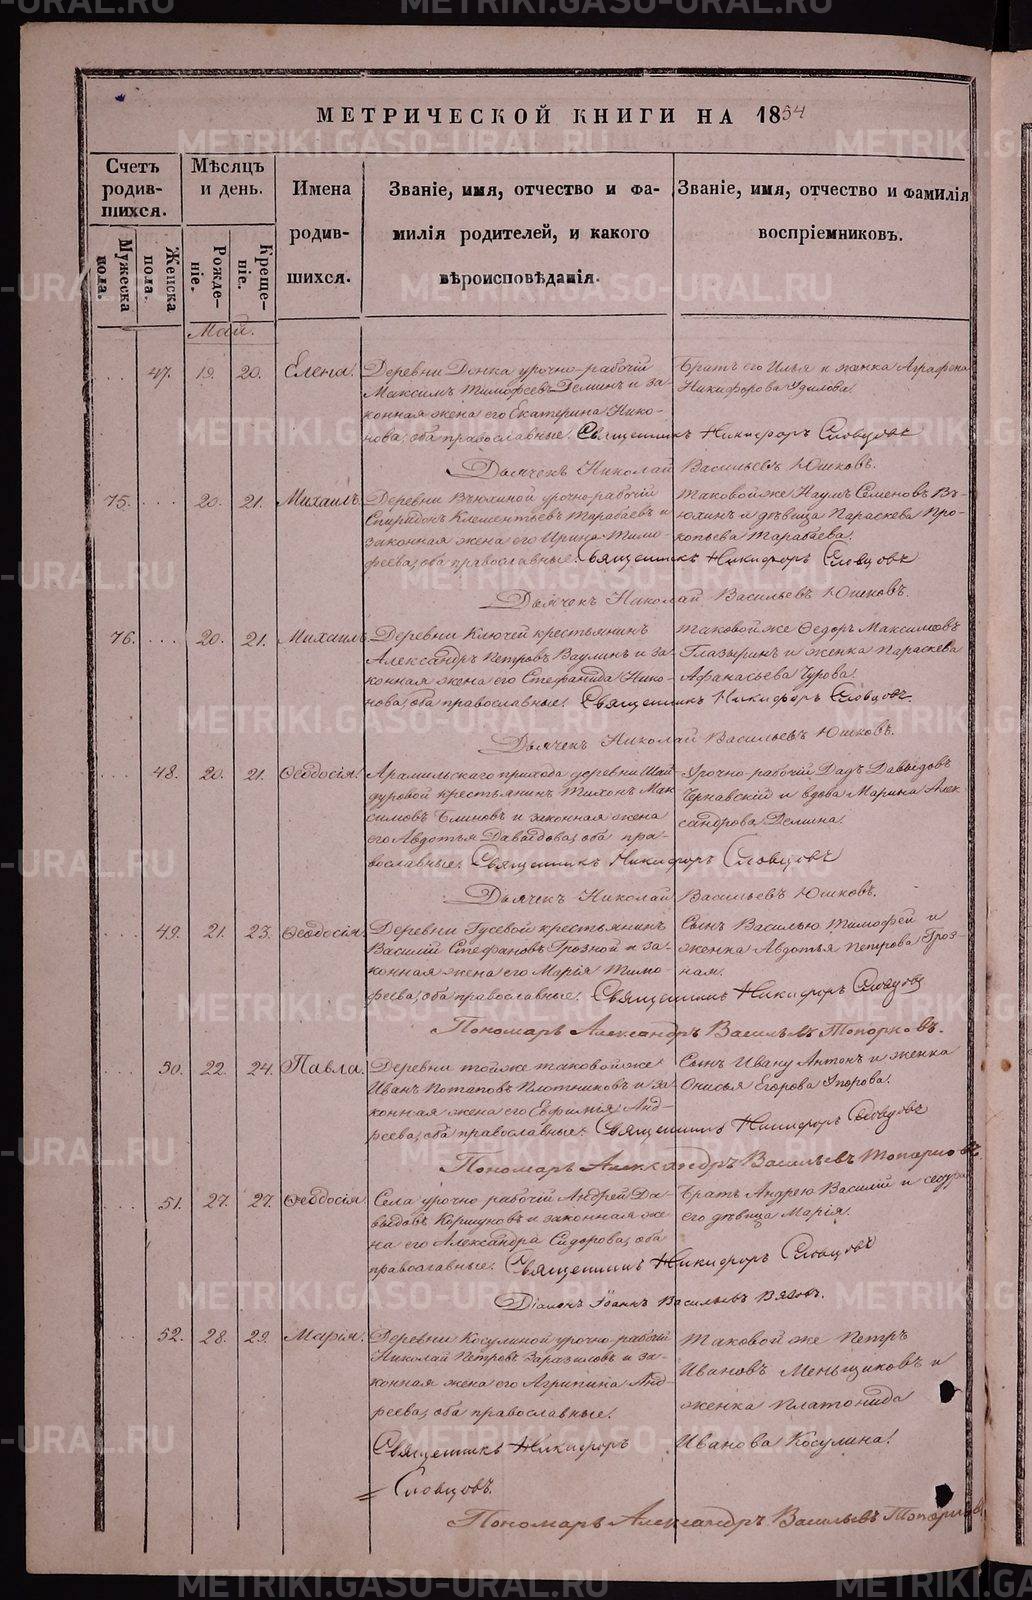 МЕТРИЧЕСКОЙ КНИГИ НА 1854
Счетъ родив-шихся.
Мѣсяцъ и день.
Имена родив-шихся.
Званіе, имя, отчество и фа-
милія родителей, и какого
вѣроисповѣданія.
Званіе, имя, отчество и фамилія
воспріемниковъ.
Мужеска пола.
Женска пола.
Рожде-ніе.
Креще-ніе.
Май.
47. 19. 20. Елена.
Деревни урочно-рабочій
Максимъ Тимофеевъ Деминъ и за-
конная жена его Екатерина Нико-
нова, оба православные. Священникъ Никифоръ Словцовъ
Братъ его Илья и женка Аграфена
Никифорова Удилова.
Дьячекъ Николай Васильевъ Юшковъ.
75. 20. 21. Михаилъ.
Деревни Вьюхиной урочно-рабочій
Спиридонъ Клементьевъ Тарабаевъ и
законная жена его Ирина Тимо-
феева, оба православные. Священникъ Никифоръ Словцовъ
Таковой же Наумъ Семеновъ Вь-
юхинъ и дѣвица Параскева Про-
копьева Тарабаева.
Дьячекъ Николай Васильевъ Юшковъ.
76. 20. 21. Михаилъ
Деревни Ключей крестьянинъ
Александръ Петровъ Ваулинъ и за-
конная жена его Стефанида Нико-
нова, оба православные. Священникъ Никифоръ Словцовъ.
Таковой же Федоръ Максимовъ
Глазыринъ и женка Параскева
Афанасьева Чурова.
Дьячекъ Николай Васильевъ Юшковъ.
48. 20. 21. Феодосія.
Арамильскаго прихода деревни Шай-
дуровой крестьянинъ Тихонъ Мак-
симовъ Блиновъ и законная жена
его Авдотья Давыдова, оба пра-
вославные. Священникъ Никифоръ Словцовъ
Урочно-рабочій Давыдовъ
Чернавскій и вдова Марина Алек-
сандрова Демина.
Дьячекъ Николай Васильевъ Юшковъ.
49. 21. 23. Феодосія.
Деревни Гусевой крестьянинъ
Василій Стефановъ Грозной и за-
конная жена его Марія Тимо-
феева, оба православные. Священникъ Никифоръ Словцовъ
Сынъ Василью Тимофей и
женка Авдотья Петрова Гроз-
ная.
Пономарь Александръ Васильевъ Топорковъ.
50. 22. 24. Павла.
Деревни той же таковой же
Иванъ Потаповъ Плотниковъ и за-
конная жена его Евфимія Анд-
реева, оба православные. Священникъ Никифоръ Словцовъ
Сынъ Ивану Антонъ и женка
Онисья Егорова Упорова.
Пономарь Александръ Васильевъ Топорковъ.
51. 27. 27. Феодосія
Села урочно рабочій Андрей Да-
выдовъ Коршуновъ и законная же-
на его Александра Сидорова, оба
православные. Священникъ Никифоръ Словцовъ
Братъ Андрею Василій и сестра
его дѣвица Марія.
Діаконъ Іоаннъ Васильевъ
52. 28. 29. Марія.
Деревни Косулиной урочно-рабочій
Николай Петровъ Заразиловъ и за-
конная жена его Агрипина Анд-
реева, оба православные.
Священникъ Никифоръ
Словцовъ.
Таковой же Петръ
Ивановъ Меньщиковъ и
женка Платонида
Иванова Косулина.
Пономарь Александръ Васильевъ Топорковъ
METRIKI.GASO-URAL.RU